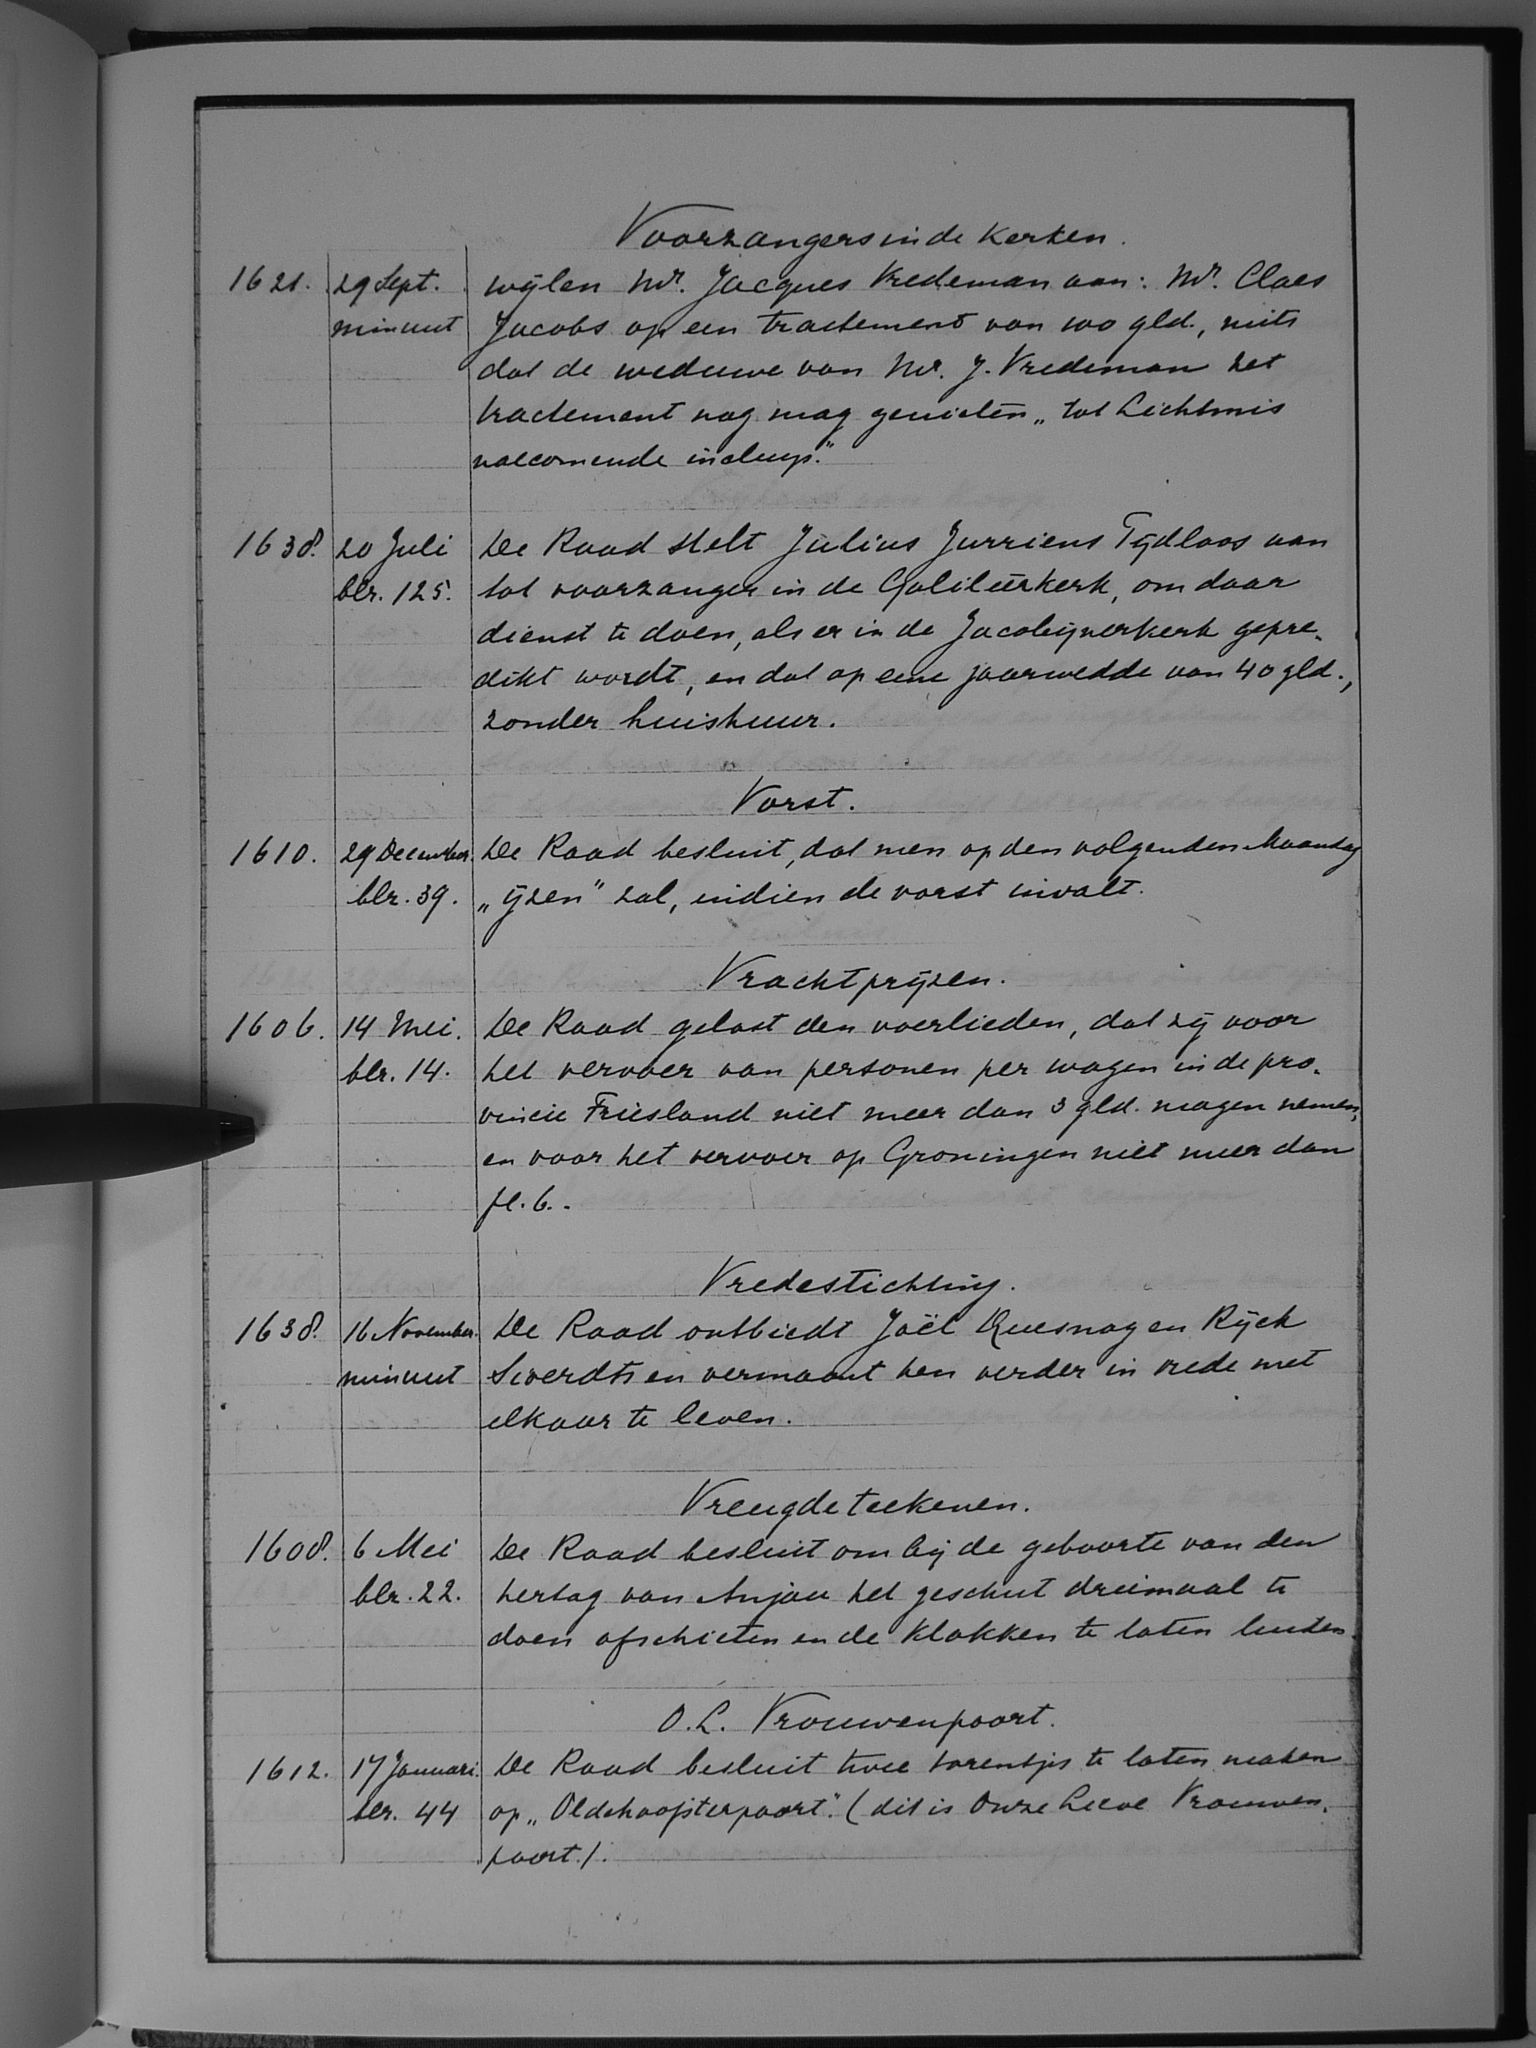 Voorzangers in de kerken.
1621. 29 Sept. wijlen Mr. Jacques Vredeman aan: Mr. Claes
minuut Jacobs op een tractement van 100 gld., mits
dat de weduwe van Mr. J. Vredeman het
tractement nog mag genieten „tot Lichtmis
naecomende incluys."
1638. 20 Juli De Raad stelt Julius Jurriens Tijdloos aan
blz. 125. tot voorzanger in de Galileërkerk, om daar
dienst te doen, als er in de Jacobijnerkerk gepre-
dikt wordt, en dat op eene jaarwedde van 40 gld.,
zonder huishuur.
Vorst.
1610. 29 December. De Raad besluit, dat men op den volgenden Maandag
blz. 39. „ijzen" zal, indien de vorst invalt.
Vrachtprijzen.
1606. 14 Mei. De Raad gelast den voerlieden, dat zij voor
blz. 14. het vervoer van personen per wagen in de pro-
vincie Friesland niet meer dan 3 gld. mogen nemen,
en voor het vervoer op Groningen niet meer dan
fl. 6.-
Vredestichting.
1638. 16 November. De Raad ontbiedt Joël Quesnoy en Rijck
minuut Sweerdts en vermaant hen verder in vrede met
elkaar te leven.
Vreugdeteekenen.
1608. 6 Mei De Raad besluit om bij de geboorte van den
blz. 22. hertog van Anjou het geschut driemaal te
doen afschieten en de klokken te laten luiden.
O. L. Vrouwenpoort.
1612. 17 Januari. De Raad besluit twee torentjes te laten maken
blz. 44 op „Oldehoofsterpoort". (dit is Onze Lieve Vrouwen-
poort.).